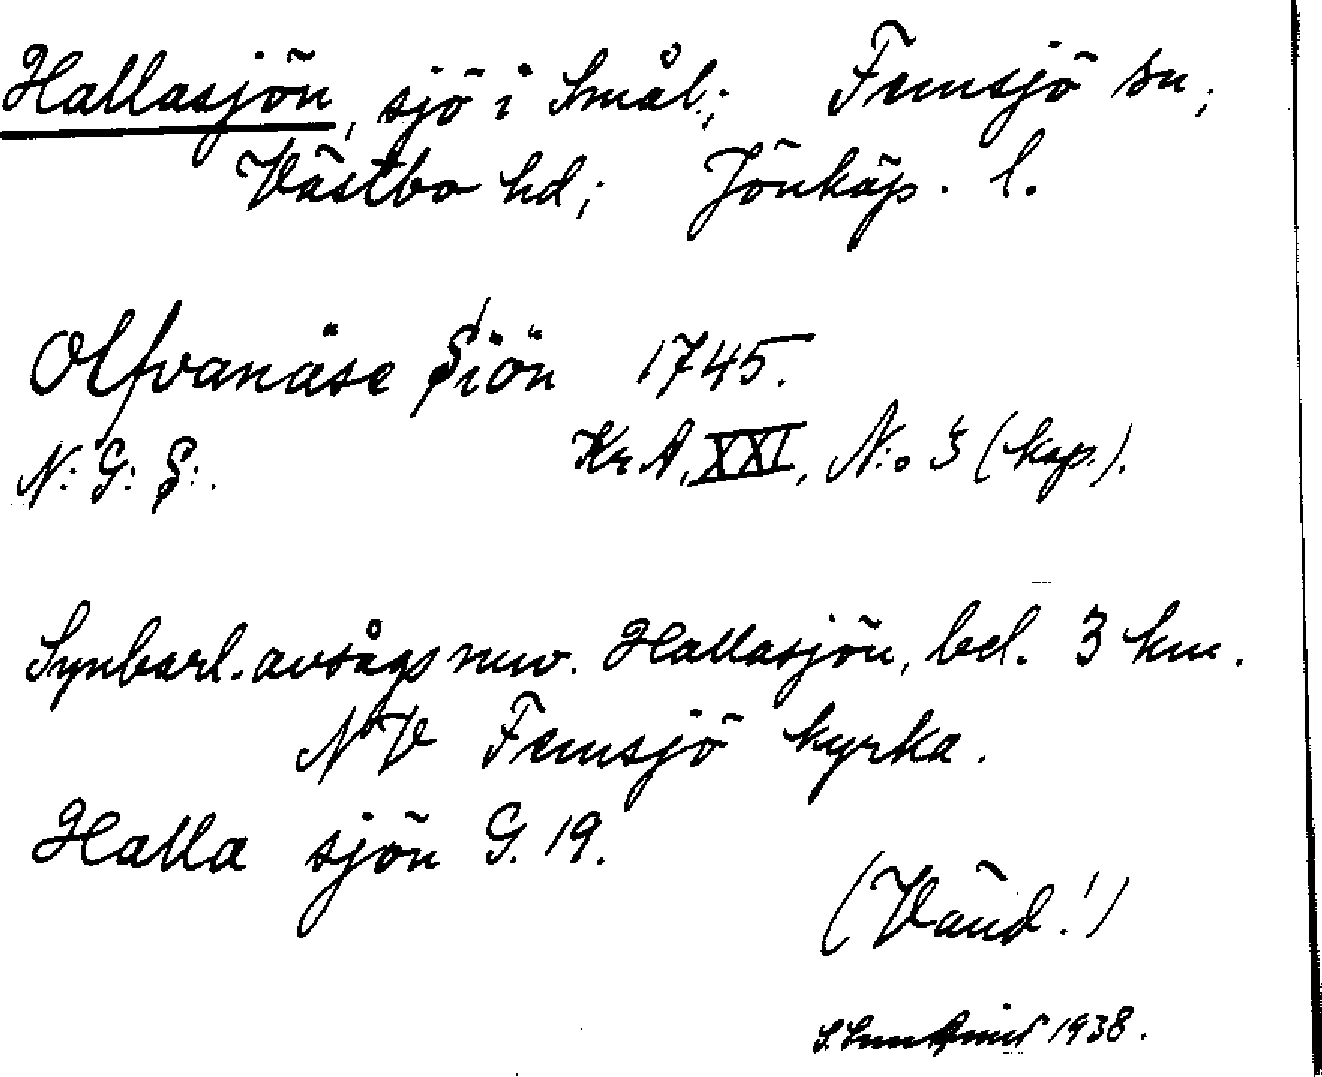 Hallasjön, sjö i Smål.; Femsjö sn;
Västbo hd; Jönköp. l.
Olfvanäse Siön 1745.
N: G: S:.
Kr A, XXI, N:o 3 (kop.).
Synbarl. avságs nuv. Hallasjön, bel. 3 km.
NV Femsjö kyrka.
Halla sjön G. 19.
(Vänd!)
1938.